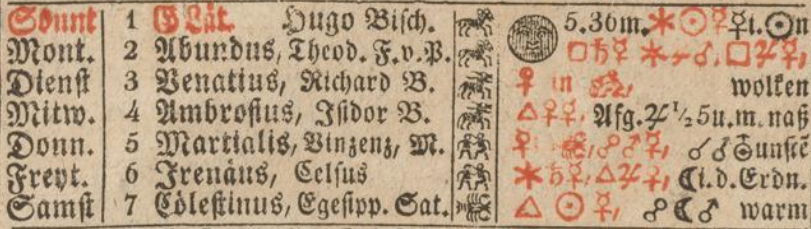 Sonnt 1 G Lät. Hugo Bisch. 5.36m. ✶☉♀☿i.☉n
Mont. 2 Abundus, Theod. F.v.P. □♄☿ ✶♂, □♃☿,
Dienst 3 Venatius, Richard B. ♀ in wolken
Mitw. 4 Ambrosius, Isidor B. △☿♀, Afg.♃ ½5u.m.naß
Donn. 5 Martialis, Vinzenz, M. ♀ ☍♂☿, ☌♂☉unstē
Freyt. 6 Irenäus, Celsus ✶♄☿, △♃♀, ☾i.d.Erdn.
Samst 7 Cölestinus, Egesipp. Sat. △☉☿, ☍☾♂ warm